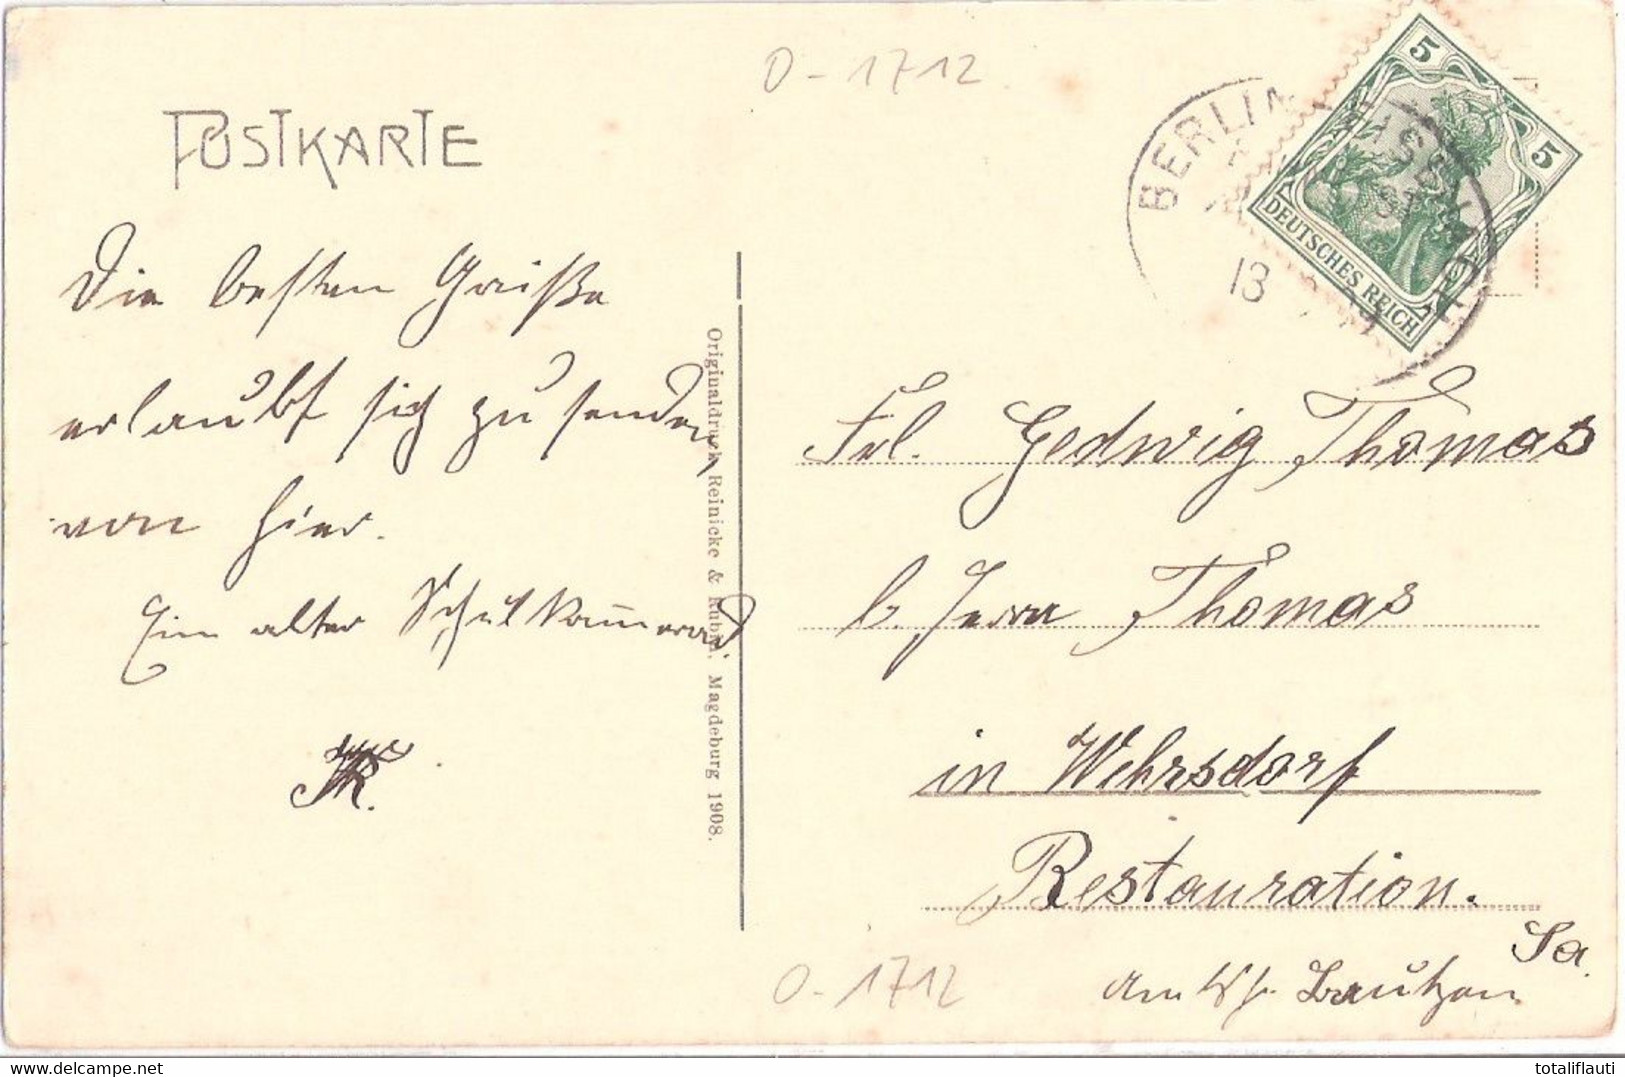 O-1712
POSTKARTE
BERLIN
13
5
5
DEUTSCHES REICH
Die besten Grüße
erlaubt sich zu senden
von hier.
Ein alter Schulkamerad.
K.
Originaldruck Reinicke & Rubin, Magdeburg 1908.
Frl. Hedwig Thomas
b. Herrn Thomas
in Wehrsdorf
Restauration.
Sa.
Amtsh. Bautzen
O-1712
www.delcampe.net
totaliflauti